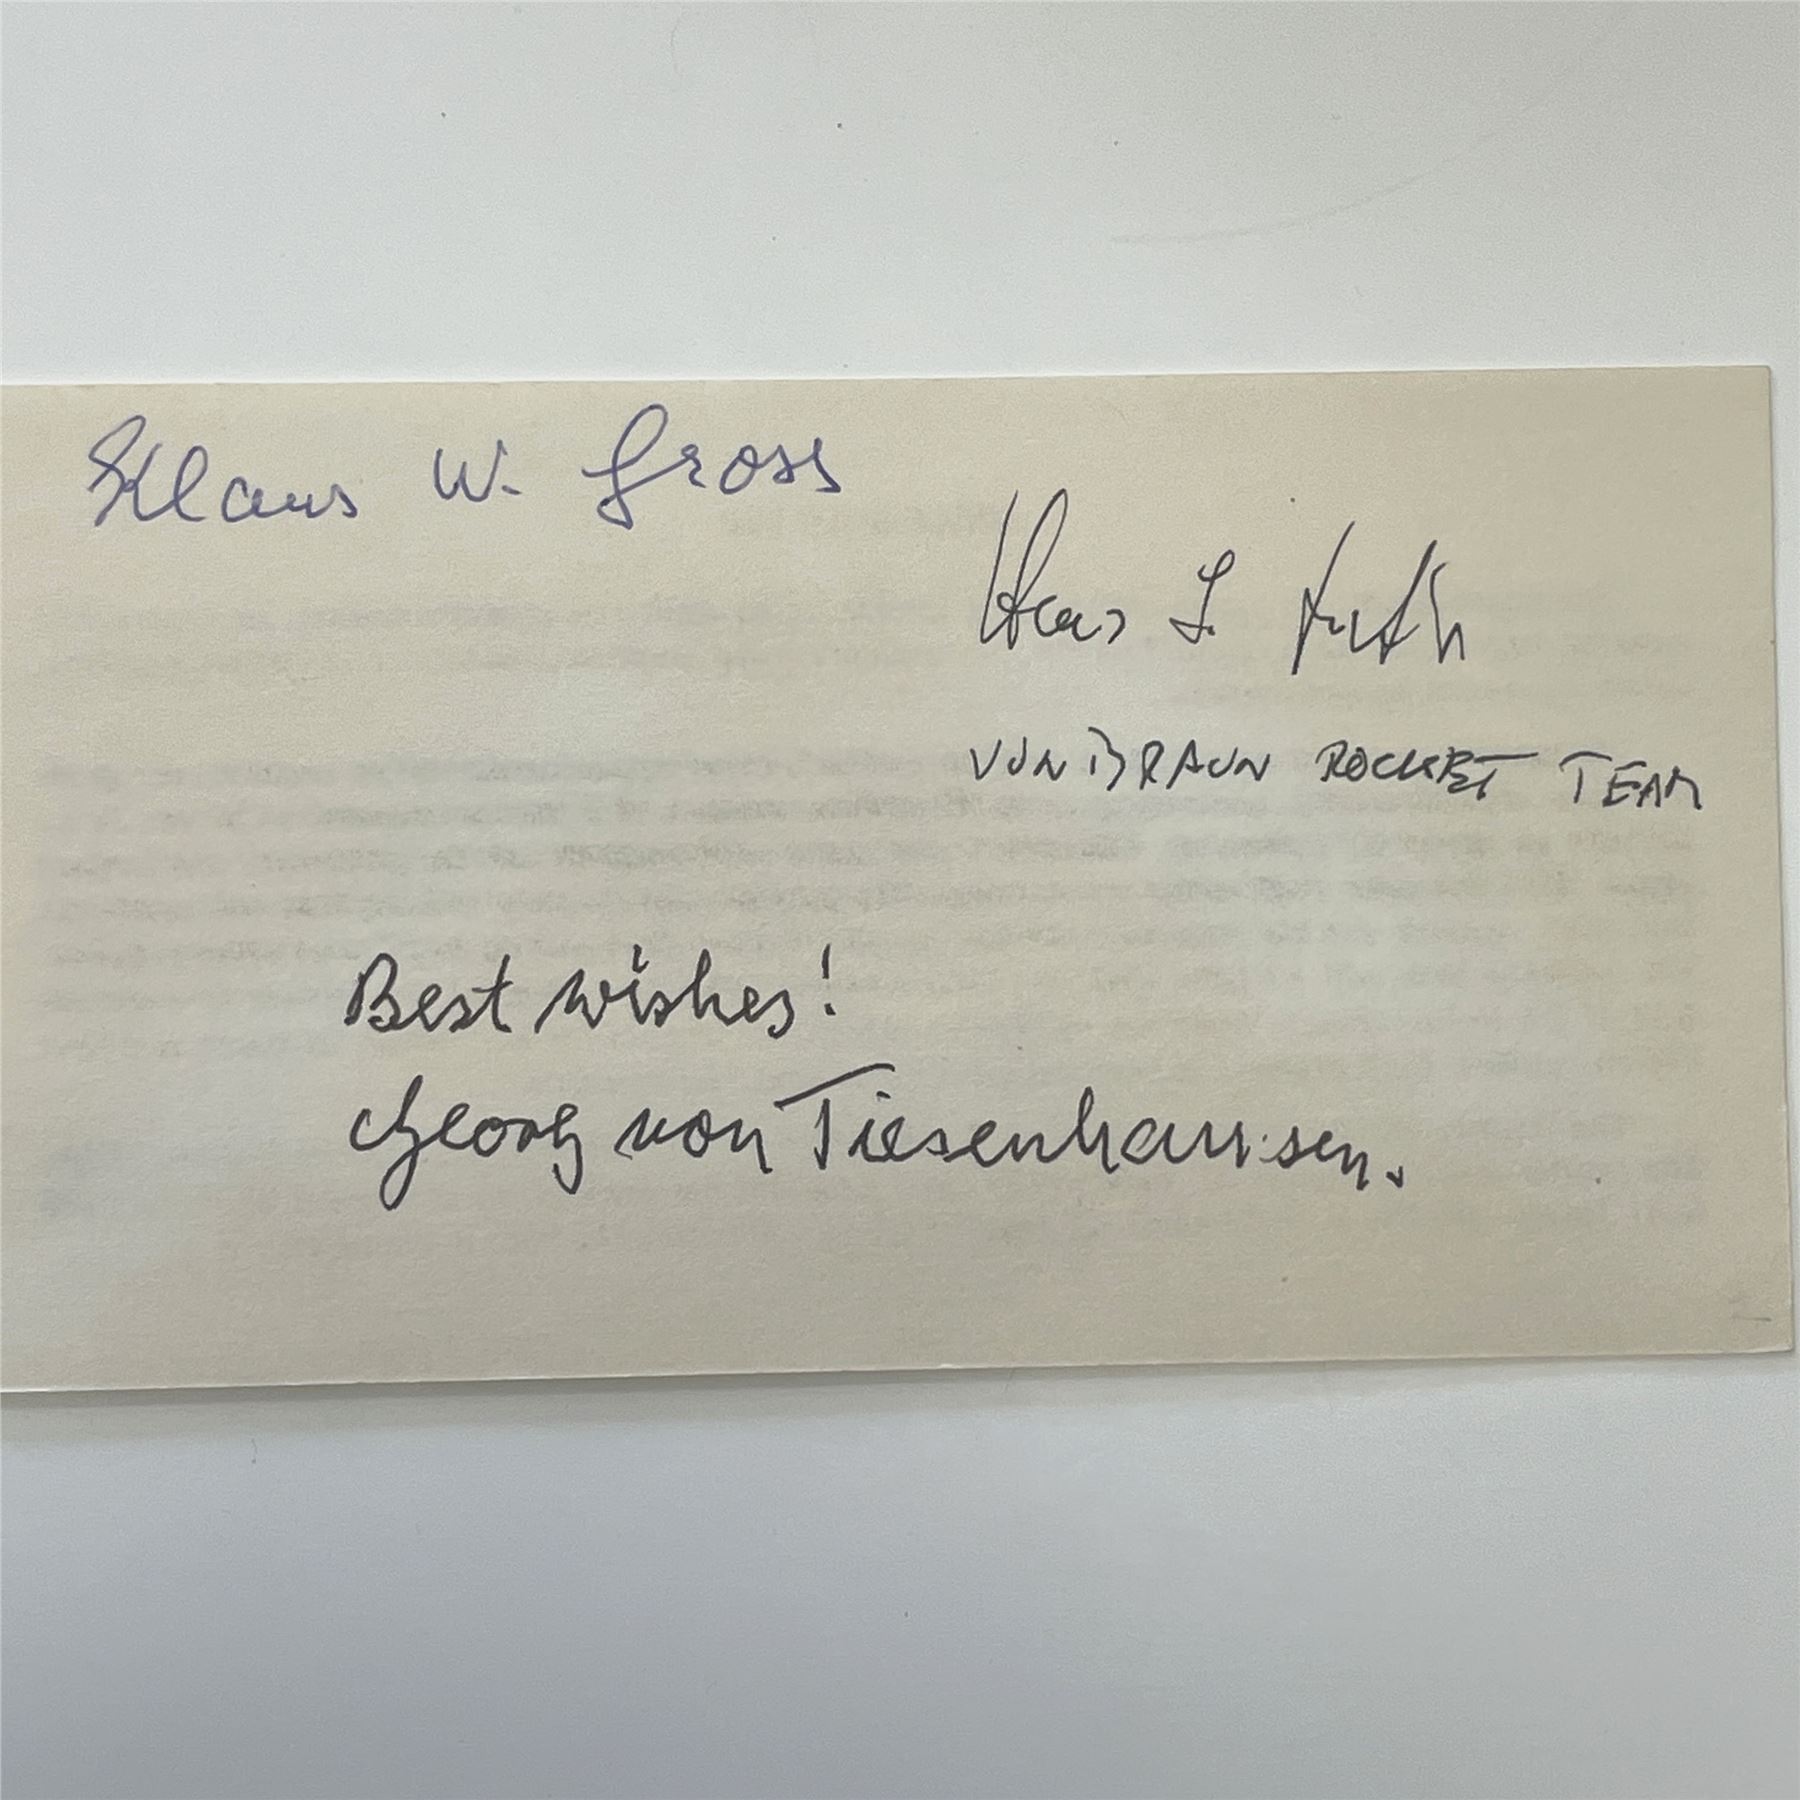 Klaus W. Gross
Hans L.
VON BRAUN ROCKET TEAM
Best wishes!
Georg von Tiesenhausen.